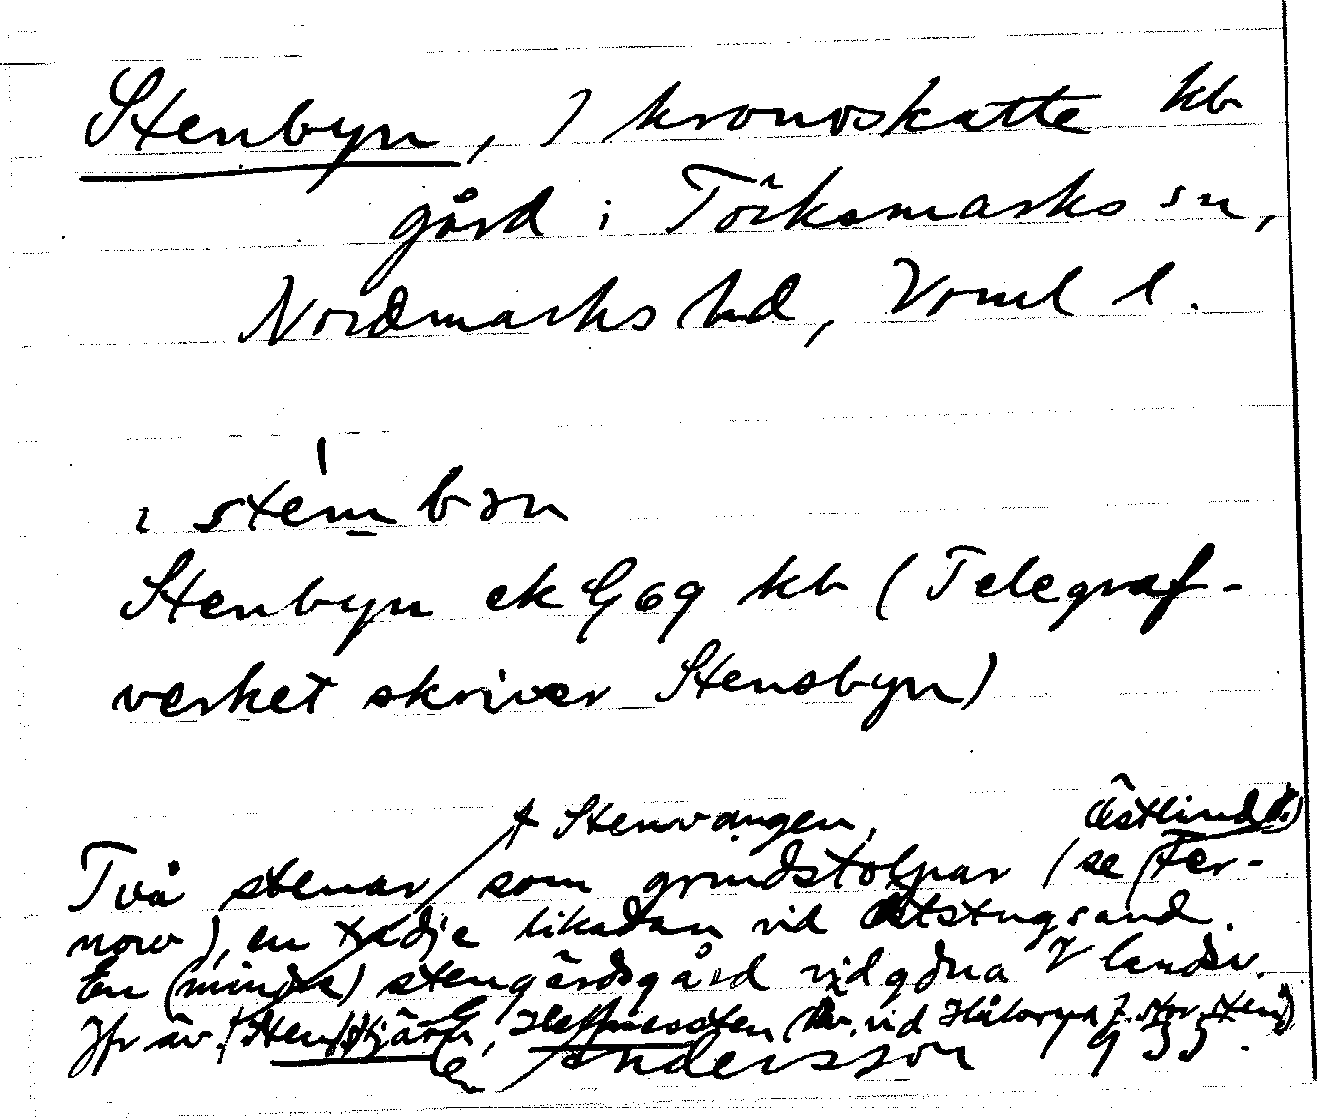 Stenbyn, 7 kronoskatte kb
gård i Töcksmarks sn,
Nordmarks hd, Värml l.
i stémbɜn
Stenbyn ek G 69 kb (Telegraf-
verket skriver Stensbyn)
Stenvången,
Östlind
Två stenar som grindstolpar (se Fer-
now), en tredje likadan vid Utstugsand.
En (mindre) stengärdsgård vid gdna V landsv.
Jfr äv.
E Andersson 1933.